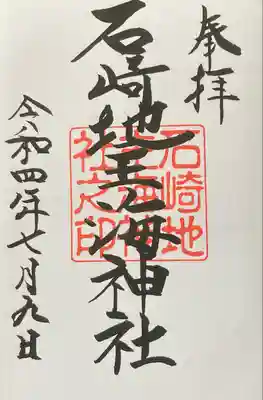 奉拝
石崎地主海神社
令和四年七月九日
石崎地
主海神
社之印